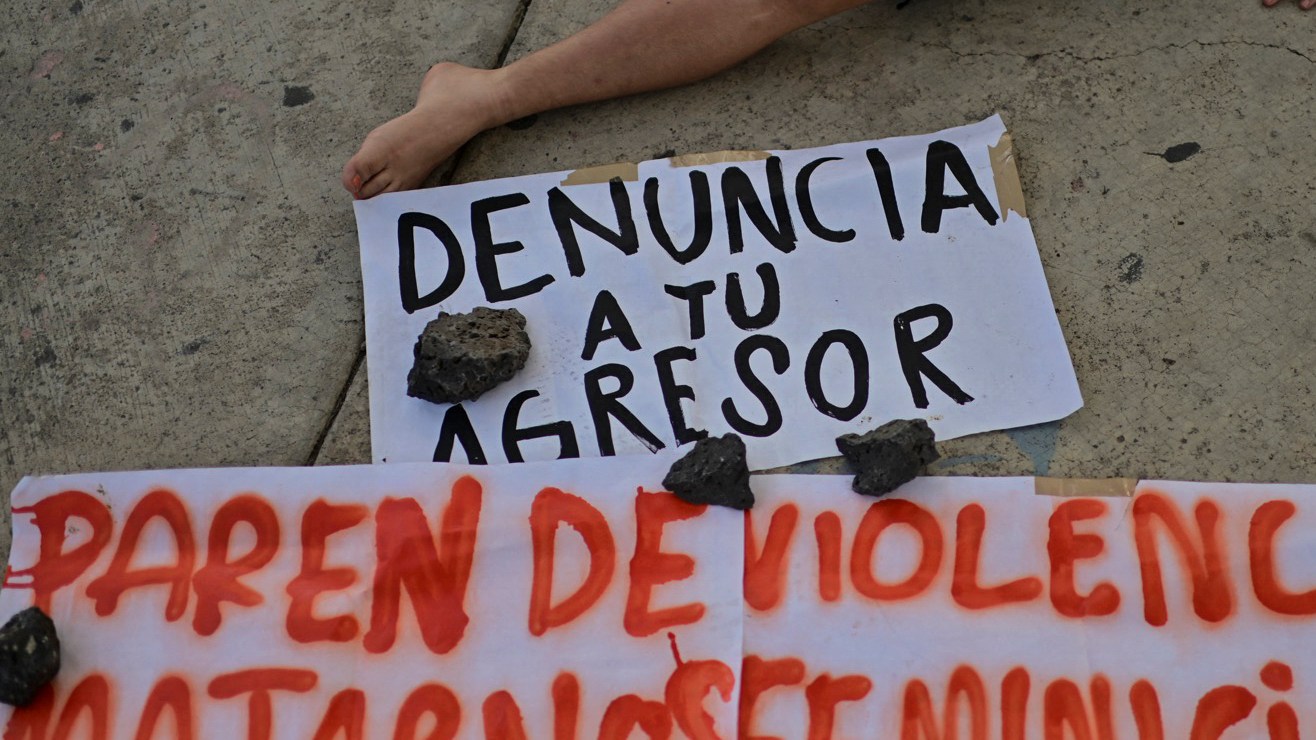 DENUNCIA
A TU
AGRESOR
PAREN DE VIOLENC
MATARNOS